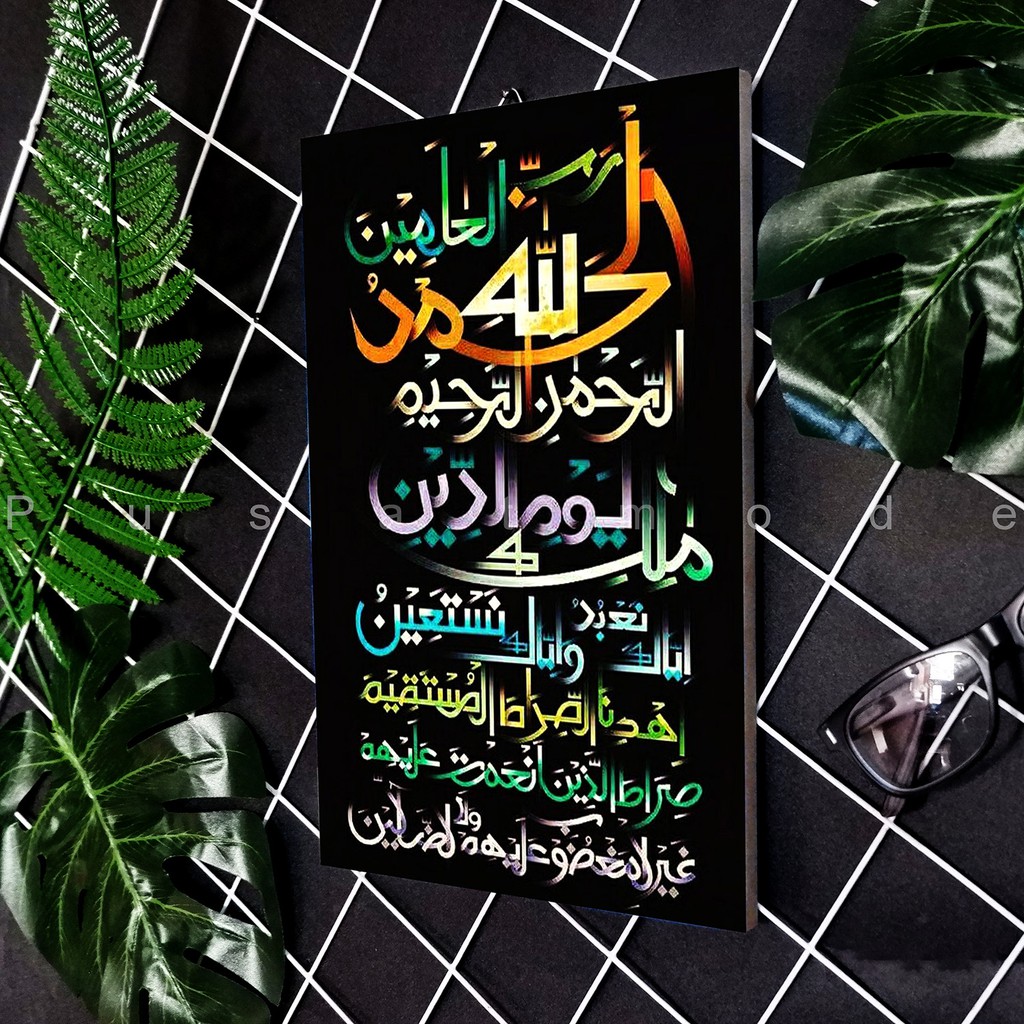 الحمد لله رب العالمين
الرحمن الرحيم
ملك يوم الدين
اياك نعبد واياك نستعين
اهدنا الصراط المستقيم
صراط الذين انعمت عليهم
غير المغضوب عليهم ولا الضالين
Pusatmode